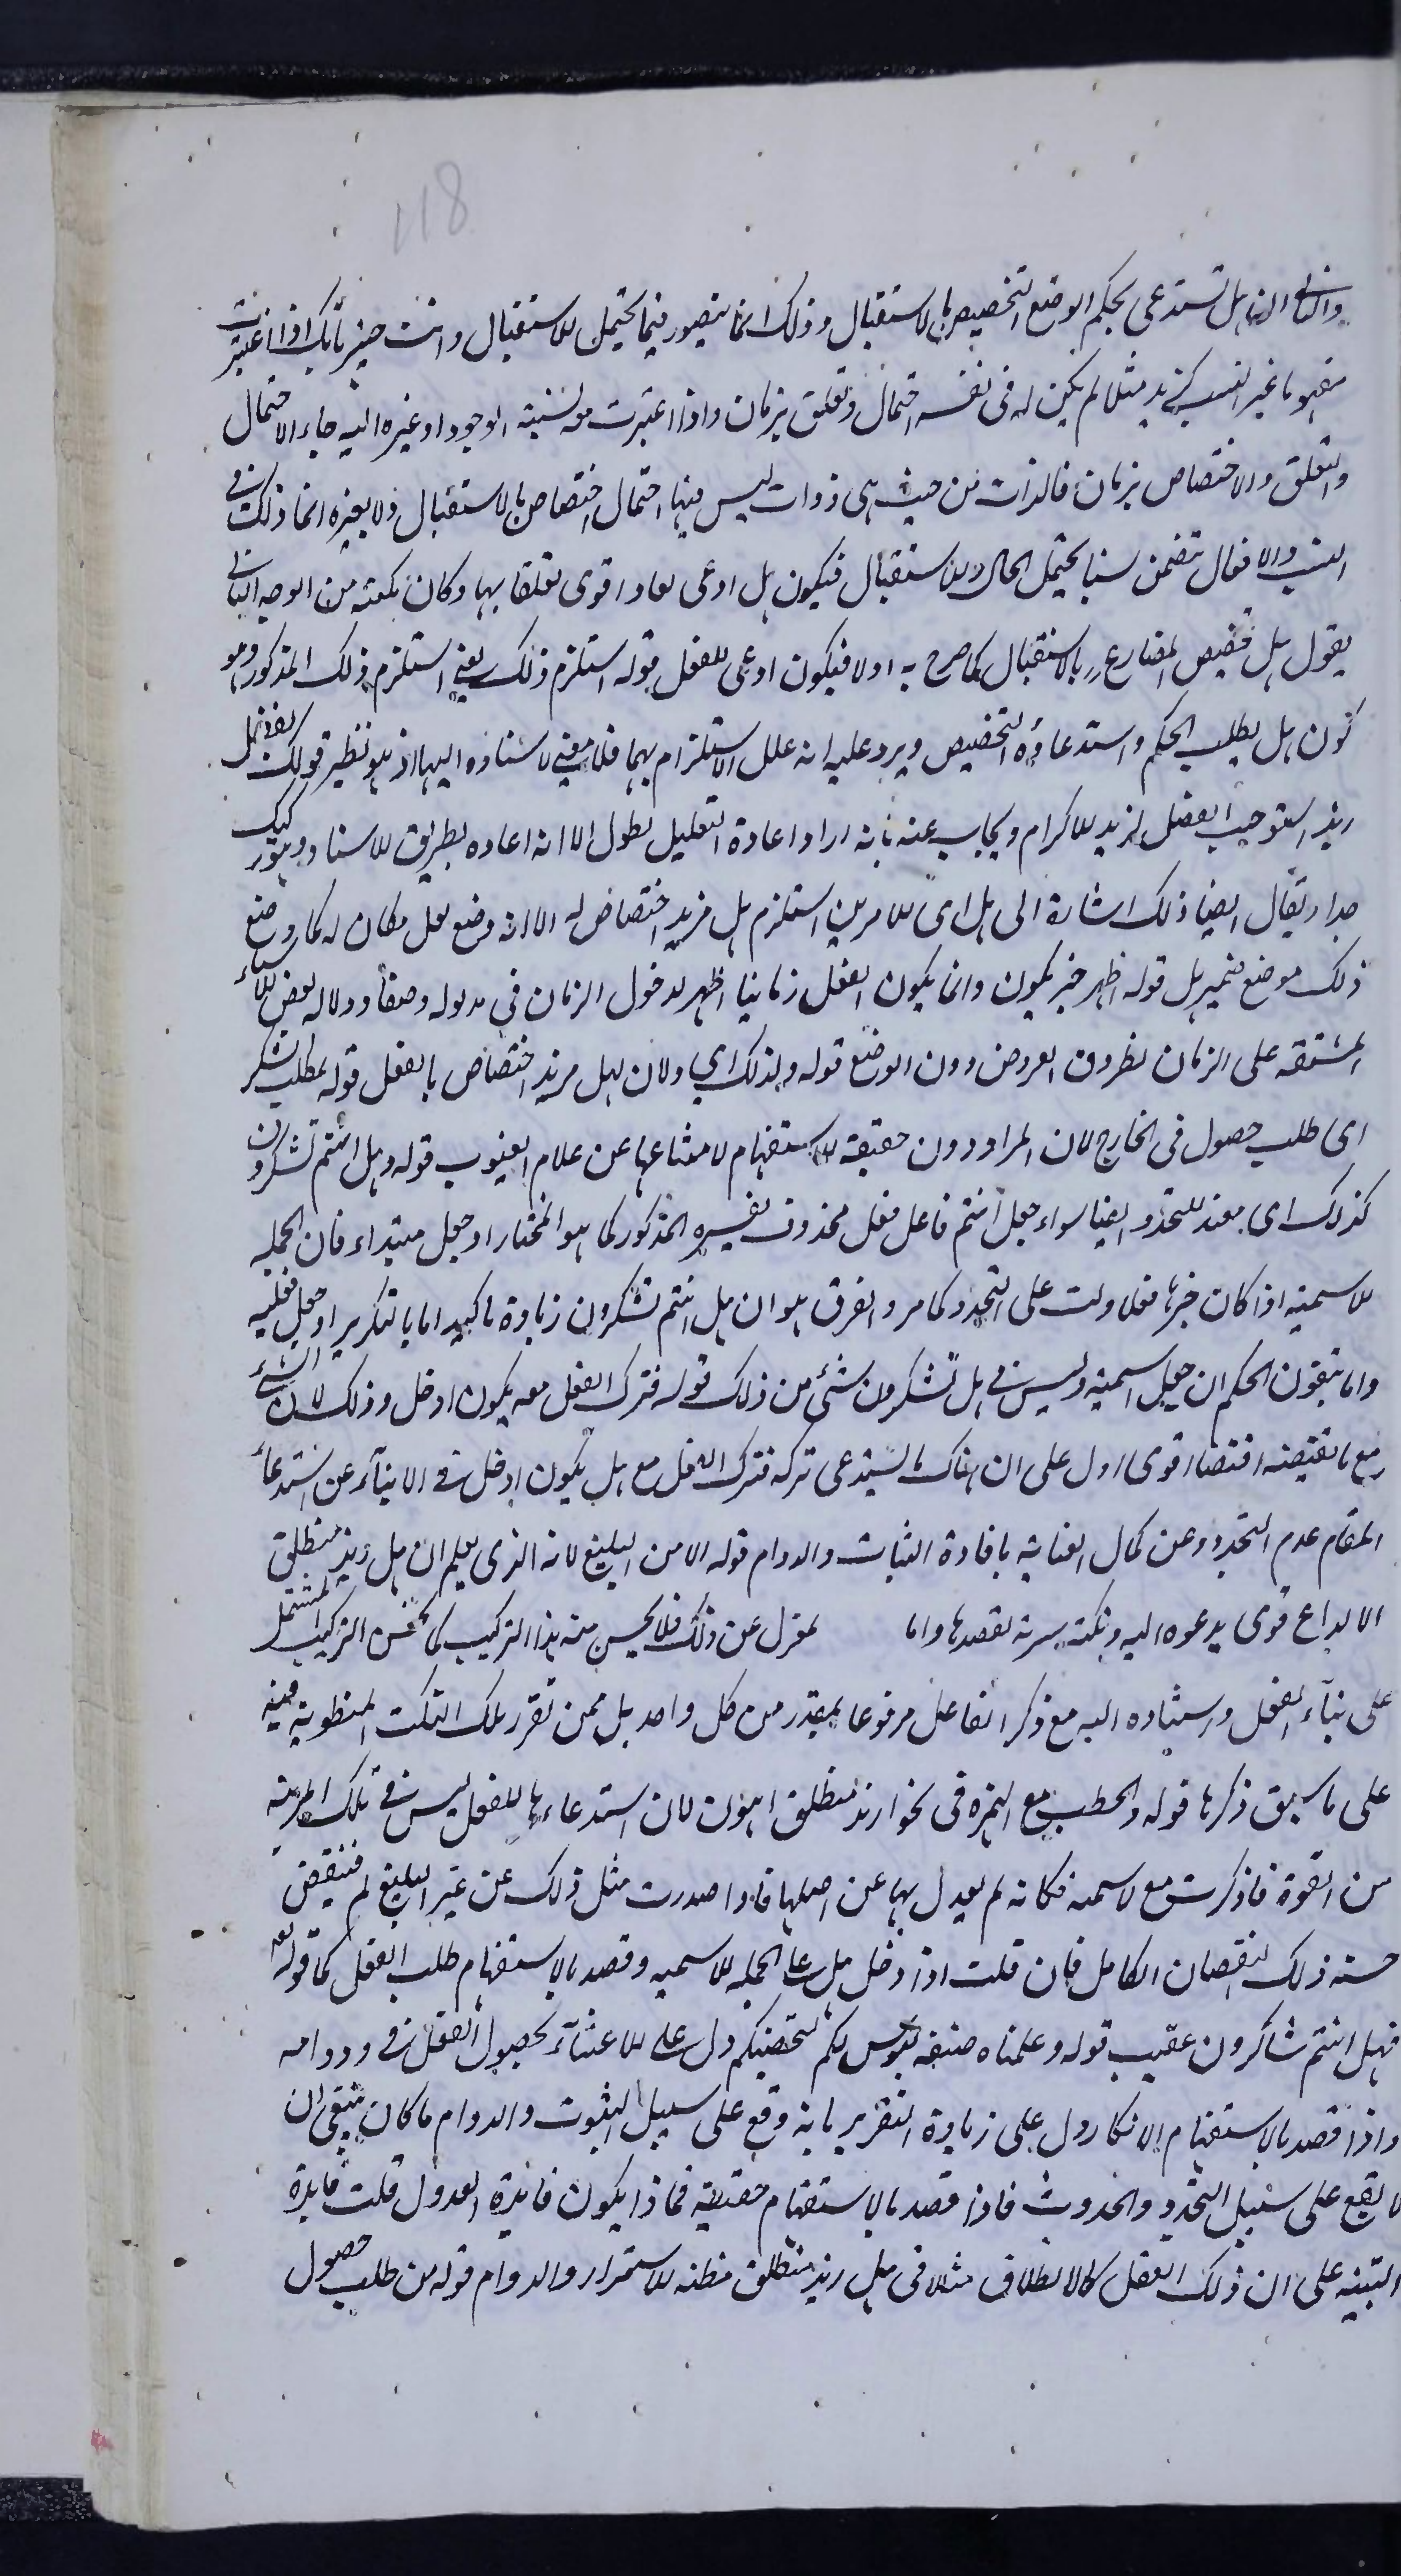 118
والثانی ان هل تستدعی بحکم الوضع التخصیص بالاستقبال وذلک انما یتصور فیما یحتمل الاستقبال وانت خبیر بانک اذا اعتبرت
مفهوما غیر النسب کزید مثلا لم یکن له فی نفسه احتمال وتعلق بزمان واذا اعتبرت معه نسبة الوجود او غیره الیه جاء الاحتمال
والتعلق والاختصاص بزمان فالذات من حیث هی ذوات لیس فیها احتمال اختصاص بالاستقبال ولا بغیره انما ذلک فی
النسب والافعال تتضمن نسبا یحتمل الحال والاستقبال فیکون هل ادعی لها واقوی تعلقا بها وکان نکتة من الوجه الثانی
یقول هل تخصیص المضارع بالاستقبال کما صرح به اولا فیکون ادعی للفعل قوله استلزم ذلک یعنی استلزم ذلک المذکور وهو
کون هل یطلب الحکم واستدعاؤه التخصیص ویرد علیه انه علل الاستلزام بهما فلا معنی لاسناده الیهما اذ هو نظیر قولک لفضل
زید استوجب الفضل لزید الاکرام ویجاب عنه بانه اراد اعادة التعلیل لطول الا انه اعاده بطریق الاسناد وهو رکیک
جدا ویقال ایضا ذلک اشارة الی هل ای الامرین استلزم هل مزید اختصاص له الا انه وضع لعل مکان له کما وضع
ذلک موضع ضمیر هل قوله اظهر خبر یکون وانما یکون الفعل زمانیا اظهر لدخول الزمان فی مدلوله وضعا ودلالة بعض الاسماء
المشتقة علی الزمان بطروق العروض دون الوضع قوله ولذلک ای ولان لهل مزید اختصاص بالفعل قوله لطلب الشکر
ای طلب حصول فی الخارج لان المراد دون حقیقة الاستفهام لامتناعها عن علام الغیوب قوله وهل انتم تشکرون
کذلک ای مفید للتجدد ایضا سواء جعل انتم فاعل فعل محذوف یفسره المذکور کما هو المختار او جعل مبتداء فان الجملة
الاسمیة اذا کان خبرها فعلا دلت علی التجدد کما مر والفرق هو ان هل انتم تشکرون زیادة تاکید اما بالتکریر او جعل فعلیة
واما بتقوی الحکم ان جعل اسمیة ولیس فی هل تشکرون شئ من ذلک قوله فترک الفعل معه یکون ادخل وذلک لان الشئ
مع ما یقتضیه اقتضاء اقوی ادل علی ان هناک ما یستدعی ترکه فترک الفعل مع هل یکون ادخل فی الانباء عن استدعاء
المقام عدم التجدد وعن کمال العنایة بافادة الثبات والدوام قوله الا من البلیغ لانه الذی یعلم ان هل زید منطلق
الا لداع قوی یدعوه الیه ونکتة سریة یقصدها واما بمعزل عن ذلک فلا یحسن منه هذا الترکیب کما یحسن الترکیب المشتمل
علی بناء الفعل واسناده الیه مع ذکر الفاعل مرفوعا بمقدر من کل واحد بل ممن تقرر تلک النکت المنطویة فیه
علی ما سبق ذکرها قوله والخطب مع الهمزة فی نحو ازید منطلق اهون لان استدعاءها للفعل لیس فی تلک المرتبة
من القوة فاذا ذکرت مع الاسمیة فکانه لم یعدل بها عن اصلها فاذا صدرت مثل ذلک عن غیر البلیغ لم ینتقض
حسنه ذلک النقصان الکامل فان قلت اذا دخل هل علی الجملة الاسمیة وقصد بالاستفهام طلب الفعل کما قوله تعالی
فهل انتم شاکرون عقیب قوله وعلمناه صنعة لبوس لکم لتحصنکم دل علی الاعتناء بحصول الفعل ودوامه
واذا قصد بالاستفهام الانکار دل علی زیادة التقریر بانه وقع علی سبیل الثبوت والدوام ما کان ینبغی ان
لا یقع علی سبیل التجدد والحدوث فاذا قصد بالاستفهام حقیقته فماذا یکون فائدة العدول قلت فایدة
التنبیه علی ان ذلک الفعل کالانطلاق مثلا فی هل زید منطلق مظنة الاستمرار والدوام قوله من طلب حصول